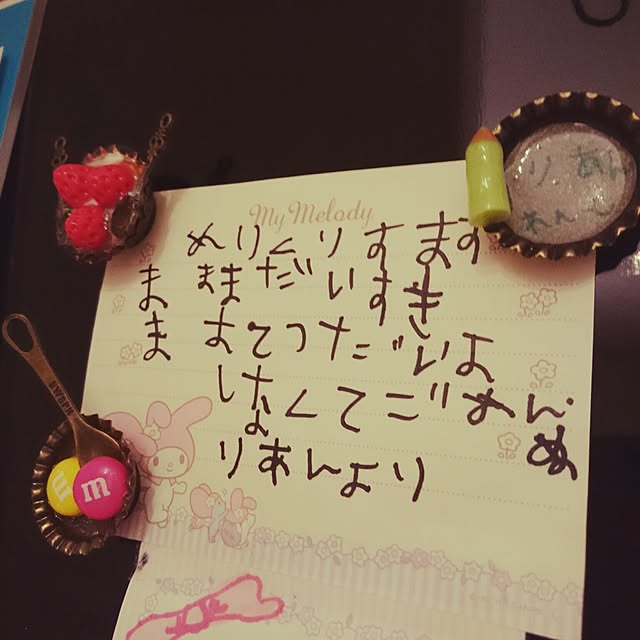 My Melody
めりくりすます
ま ままだいすき
ま すてつただいよ
くてごめん
りあんより
りあん
m
m